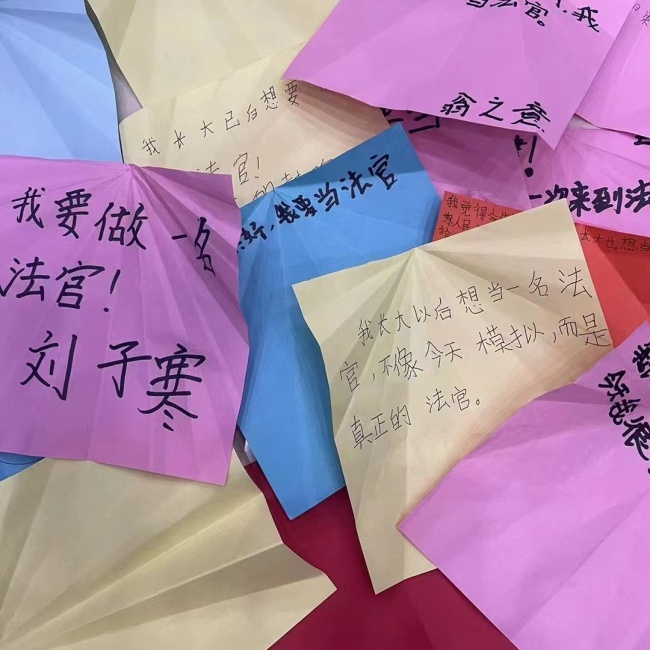 当法官。
翁之意
我长大已后想要
法官！
我要当法官
一次来到法
我觉得
为人民
长大也想当
我要做一名
法官！
刘子寒
我长大以后想当一名法
官，不像今天模拟，而是
真正的 法官。